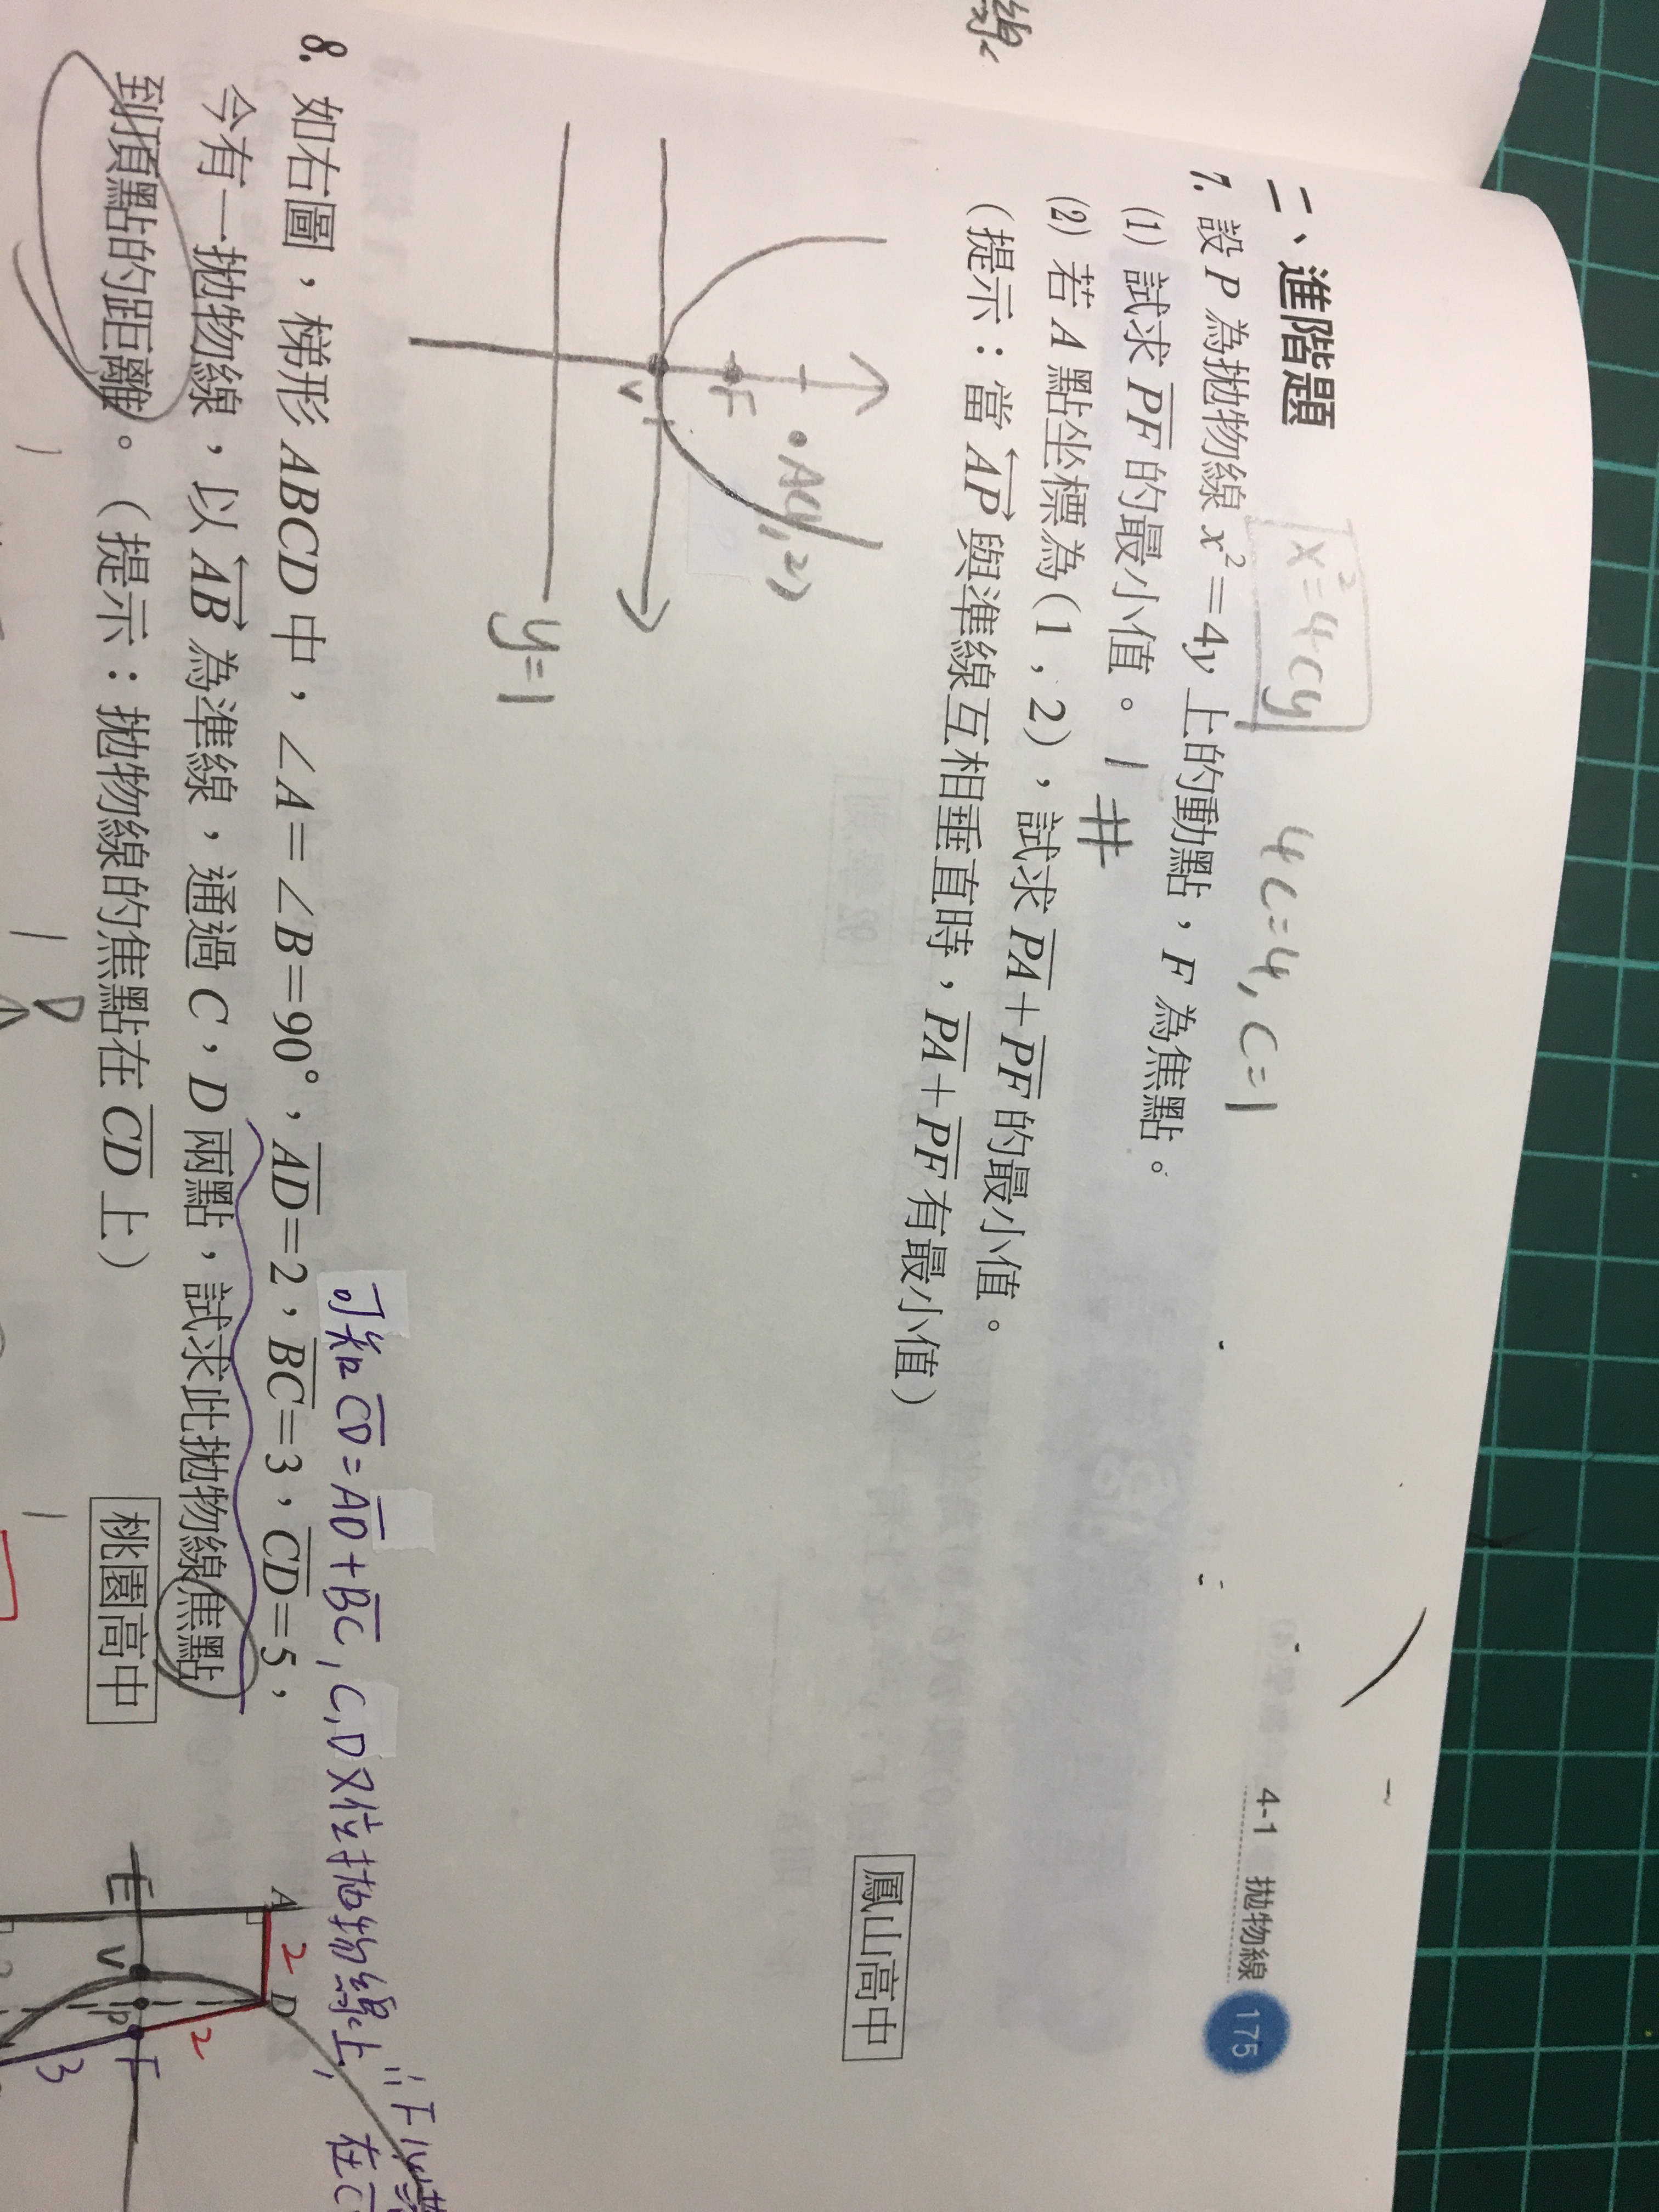 4-1 拋物線 175
二、進階題
x²=4cy
4c=4, c=1
7. 設 P 為拋物線 x²=4y 上的動點，F 為焦點。
(1) 試求 PF 的最小值。 1 #
(2) 若 A 點坐標為(1，2)，試求 PA+PF 的最小值。
(提示：當 AP 與準線互相垂直時，PA+PF 有最小值)
鳳山高中
F
V
A(1,2)
y=1
可知 CD=AD+BC, C,D又位拋物線上,
8. 如右圖，梯形 ABCD 中，∠A=∠B=90°，AD=2，BC=3，CD=5，
今有一拋物線，以 AB 為準線，通過 C，D 兩點，試求此拋物線焦點
到頂點的距離。(提示：拋物線的焦點在 CD 上)
桃園高中
A
2
D
E
V
P
F
2
3